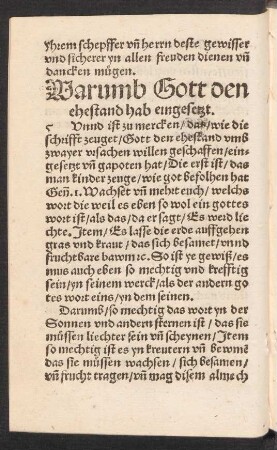 yhrem schepffer vñ herrn deste gewisser
vnd sicherer yn allen freuden dienen vñ
dancken mügen.
Warumb Gott den
ehestand hab eingesetzt.
Vnnd ist zu mercken/das/wie die
schrifft zeuget/Gott den ehestand vmb
zwayer vrsachen willen geschaffen/ein-
gesetzt vñ gapoten hat/Die erst ist/das
man kinder zenge/wie got befolhen hat
Geñ.1.Wachset vñ mehrt euch/welchs
wort die weil es eben so wol ein gottes
wort ist/als das/da er sagt/Es werd lie
chte.Item/Es lasse die erde auffgehen
gras vnd kraut/das sich besamet/vnnd
fruchtbare bawm ꝛc.So ist ye gewiß/es
mus auch eben so mechtig vnd krefftig
sein/yn seinem werck/als der andern go
ttes wort eins/yn dem seinen.
Darumb/so mechtig das wort yn der
Sonnen vnd andern sternen ist/das sie
müssen liechter sein vñ scheynen/Item
so mechtig ist es yn kreutern vñ bewmẽ
das sie müssen wachsen/sich besamen/
vñ frucht tragen/vñ mag disem almech